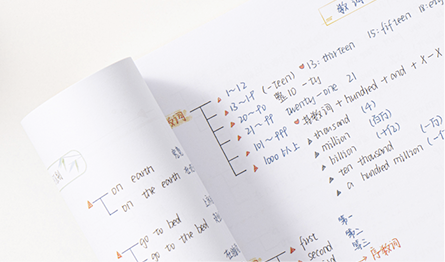 数词
13: thirteen 15: fifteen 18: eigh
数词
1~12
13~19 (-teen)
20~90 整10 -ty
21~99 twenty-one 21
101~999 基数词 + hundred + and + X-X
1000以上
thousand (千)
million (百万)
billion (十亿)
ten thousand (一万)
a hundred million (一
on earth
on the earth
go to bed
go to the bed
第一
第二
第三
first
second
序数词